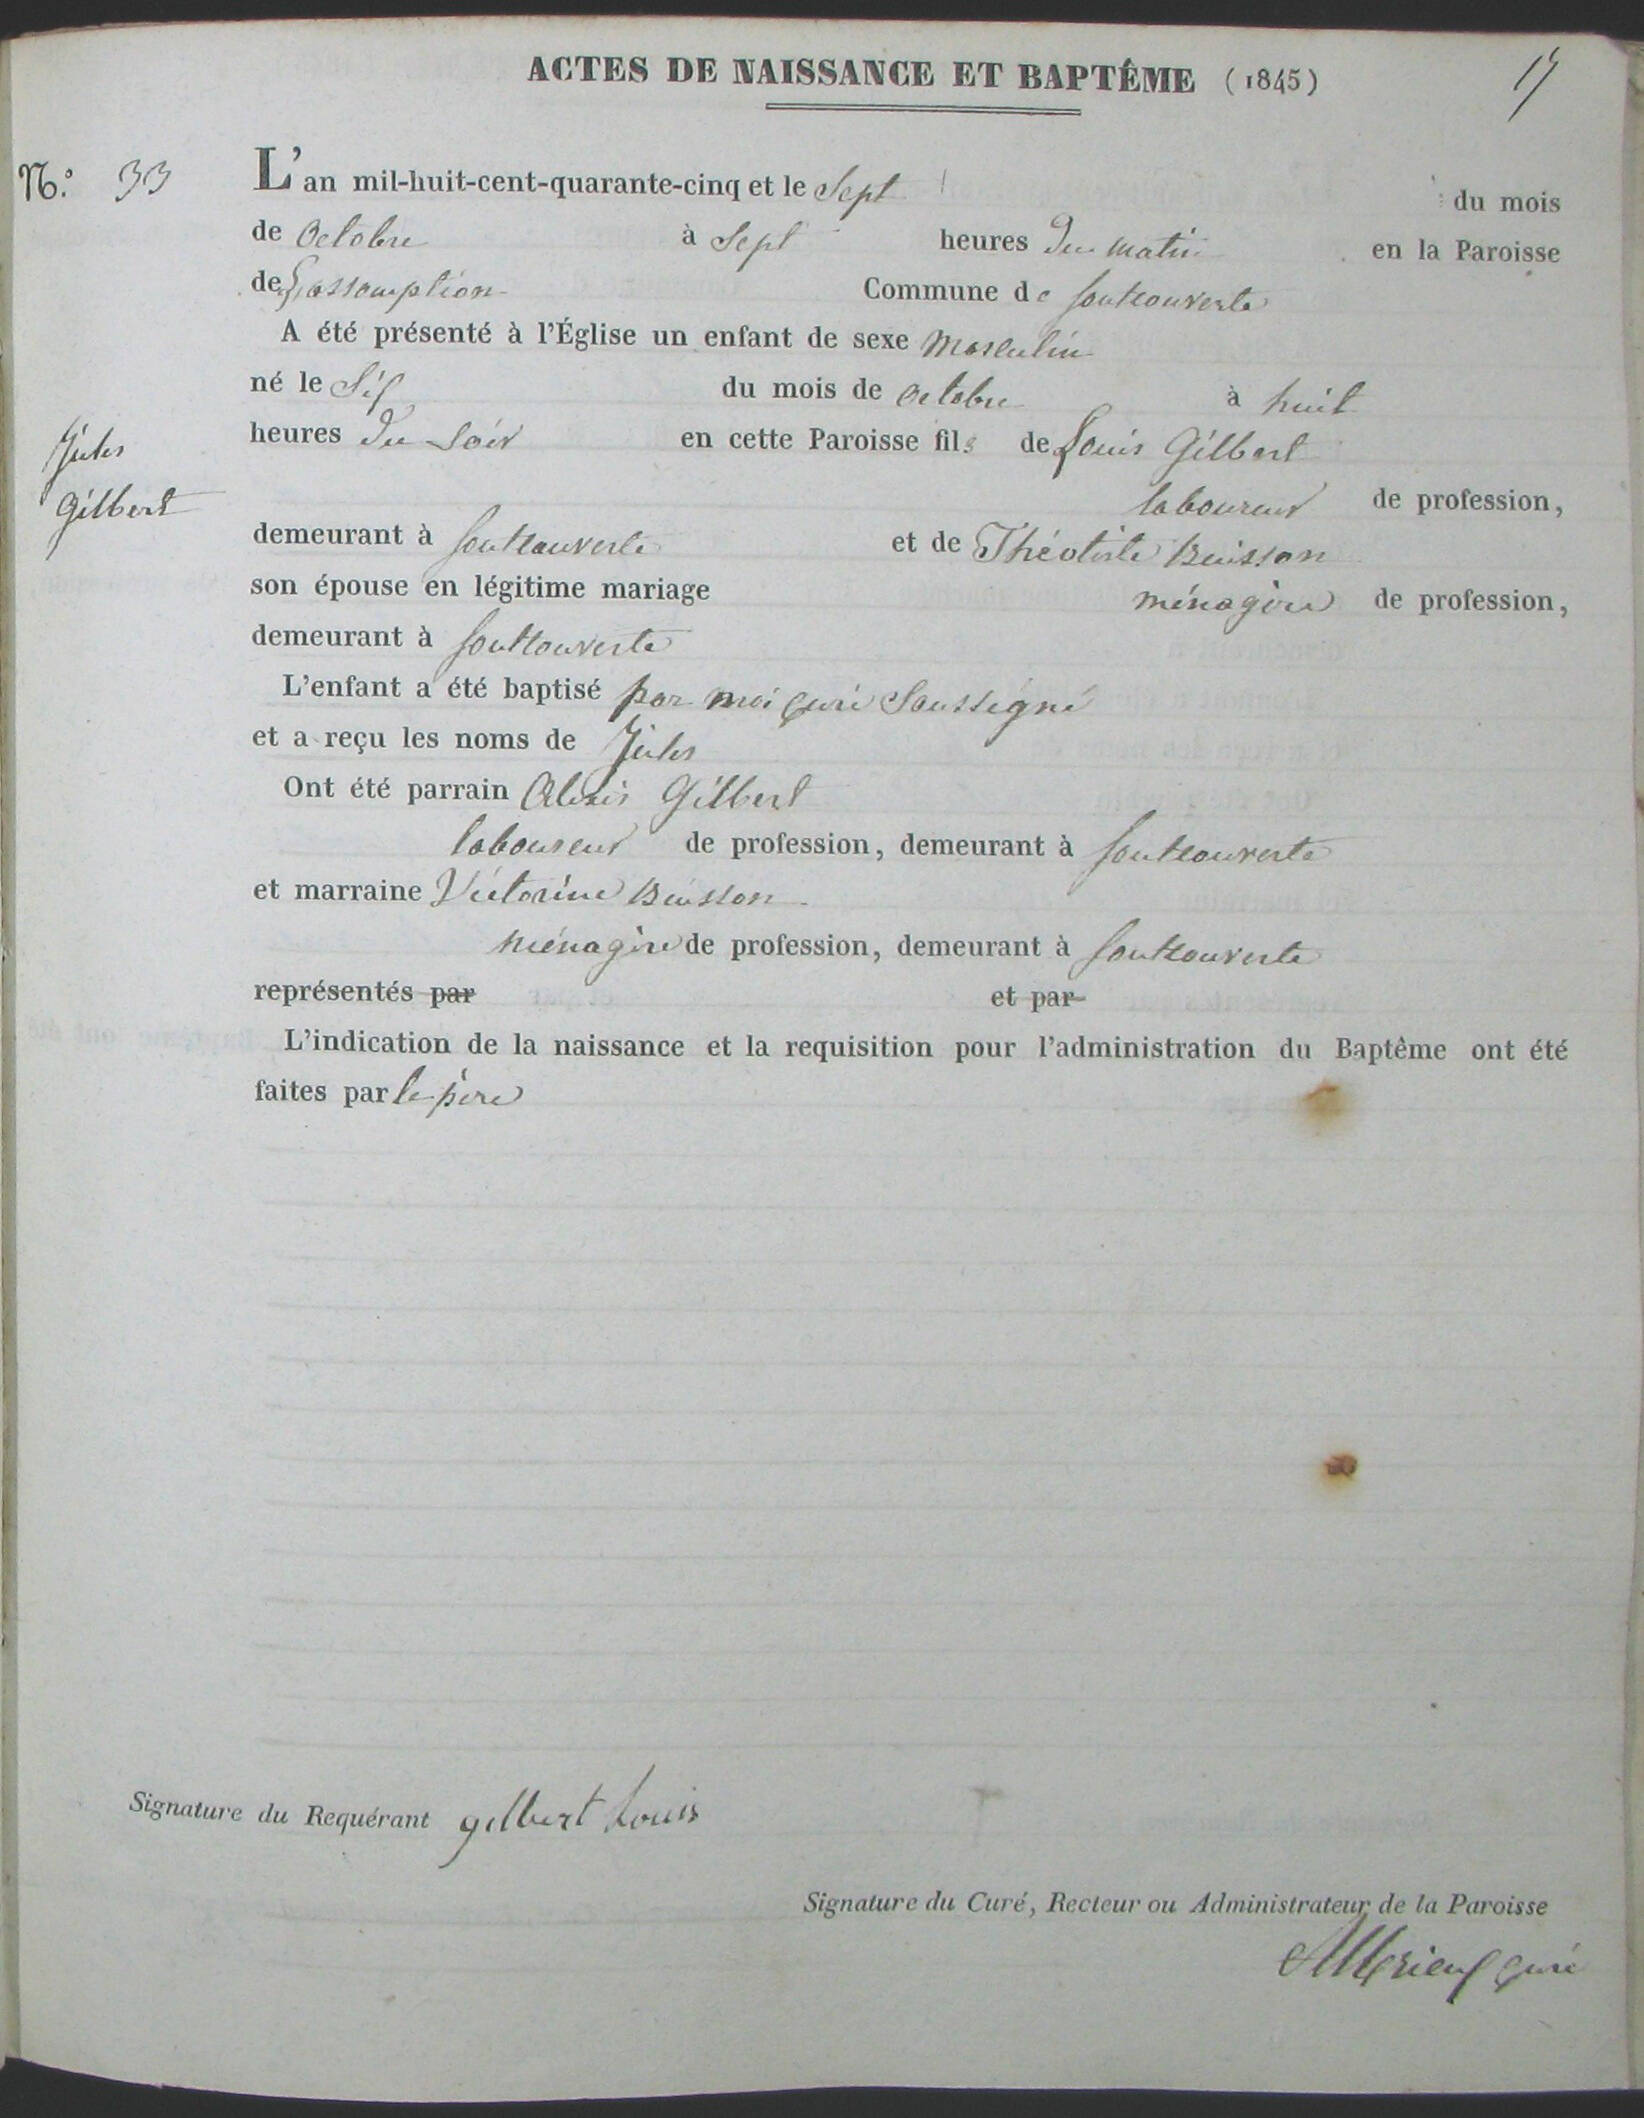 ACTES DE NAISSANCE ET BAPTÊME (1845)
N.° 33
L'an mil-huit-cent-quarante-cinq et le Sept du mois
de Octobre à Sept heures du matin en la Paroisse
de L'assomption Commune de fontcouverte
A été présenté à l'Église un enfant de sexe Masculin
né le Six du mois de Octobre à huit
heures du Soir en cette Paroisse fils de Louis Gilbert
Jules
Gilbert
laboureur de profession,
demeurant à fontcouverte et de Théotiste Buisson
son épouse en légitime mariage ménagère de profession,
demeurant à fontcouverte
L'enfant a été baptisé par moi curé Soussigné
et a reçu les noms de Jules
Ont été parrain Alexis Gilbert
laboureur de profession, demeurant à fontcouverte
et marraine Victorine Buisson
ménagère de profession, demeurant à fontcouverte
représentés par et par
L'indication de la naissance et la requisition pour l'administration du Baptême ont été
faites par le père
Signature du Requérant gilbert Louis
Signature du Curé, Recteur ou Administrateur de la Paroisse
curé